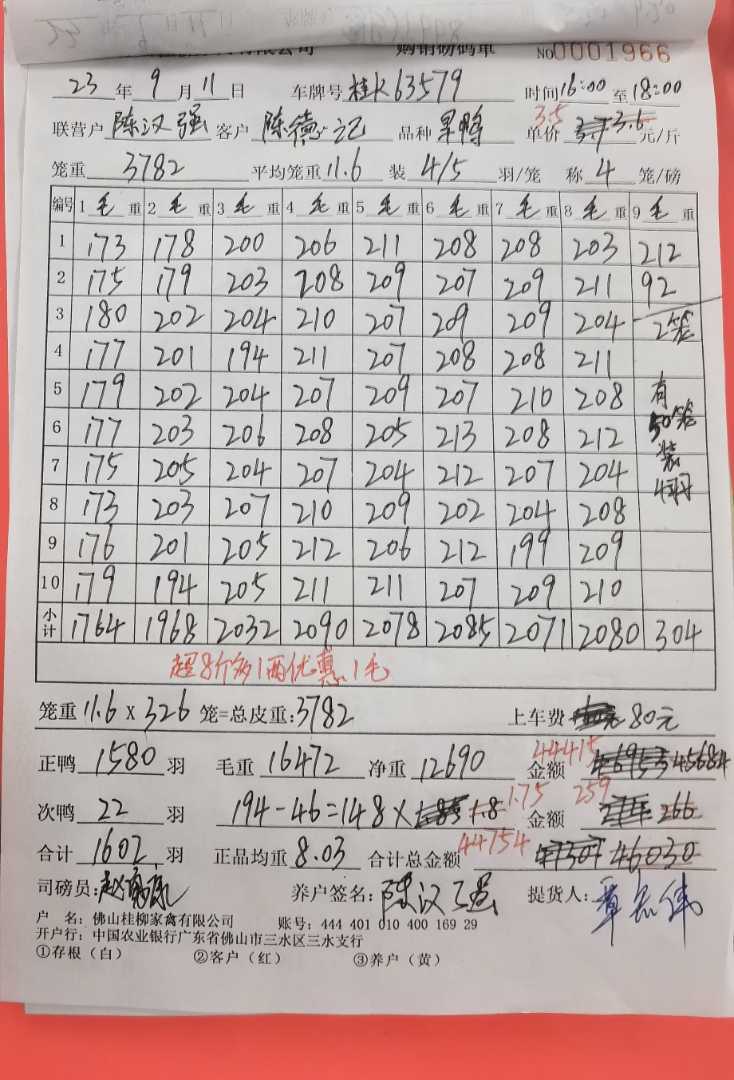 有限公司 购销磅码单 NO0001966
23年9月11日 车牌号桂K63579 时间16:00至18:00
联营户陈汉强 客户陈德记 品种旱鸭 单价3.5 3.6元/斤
笼重3782 平均笼重11.6 装4/5羽/笼 称4笼/磅
编号 1毛重 2毛重 3毛重 4毛重 5毛重 6毛重 7毛重 8毛重 9毛重
1 173 178 200 206 211 208 208 203 212
2 175 179 203 208 209 207 209 211 92
3 180 202 204 210 207 209 209 204 2笼
4 177 201 194 211 207 208 208 211
5 179 202 204 207 209 207 210 208 有
6 177 203 206 208 205 213 208 212 50笼
7 175 205 204 207 204 212 207 204 装
8 173 203 207 210 209 202 204 208 4羽
9 176 201 205 212 206 212 199 209
10 179 194 205 211 211 207 209 210
小计 1764 1968 2032 2090 2078 2085 2071 2080 304
超8斤多1两优惠1毛
笼重11.6×326笼=总皮重:3782 上车费80元
正鸭1580羽 毛重16472 净重12690 金额44415 45684
次鸭22羽 194-46=148×1.8 1.75 金额259 266
合计1602羽 正品均重8.03 合计总金额44754 46030
司磅员: 养户签名:陈汉强 提货人:
户 名:佛山桂柳家禽有限公司 账号:444 401 010 400 169 29
开户行:中国农业银行广东省佛山市三水区三水支行
①存根(白) ②客户(红) ③养户(黄)